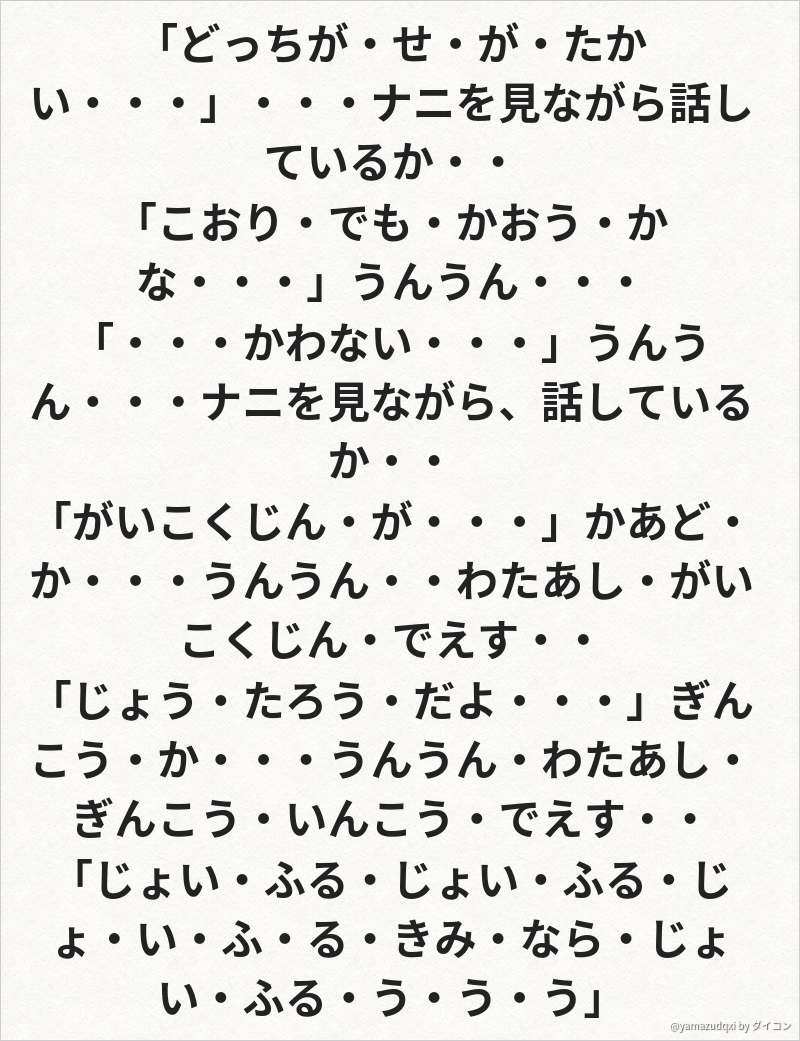 「どっちが・せ・が・たか
い・・・」・・・ナニを見ながら話し
ているか・・
「こおり・でも・かおう・か
な・・・」うんうん・・・
「・・・かわない・・・」うんう
ん・・・ナニを見ながら、話している
か・・
「がいこくじん・が・・・」かあど・
か・・・うんうん・・わたあし・がい
こくじん・でえす・・
「じょう・たろう・だよ・・・」ぎん
こう・か・・・うんうん・わたあし・
ぎんこう・いんこう・でえす・・
「じょい・ふる・じょい・ふる・じ
ょ・い・ふ・る・きみ・なら・じょ
い・ふる・う・う・う」
@yamazudqxi by ダイコン